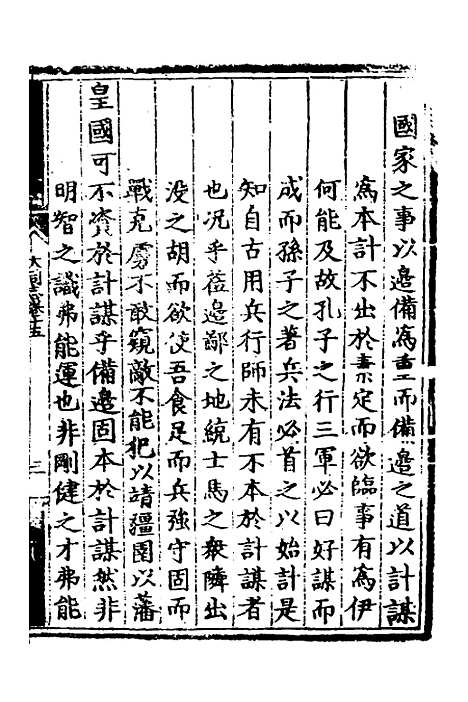 國家之事以邊備爲重而備邊之道以計謀
爲本計不出於素定而欲臨事有爲伊
何能及故孔子之行三軍必曰好謀而
成而孫子之著兵法必首之以始計是
知自古用兵行師未有不本於計謀者
也况乎蒞邊鄙之地統士馬之衆隣出
没之胡而欲使吾食足而兵強守固而
戰克虜不敢窺敵不能犯以靖疆圉以藩
皇國可不資於計謀乎備邊固本於計謀然非
明智之識弗能運也非剛健之才弗能
三